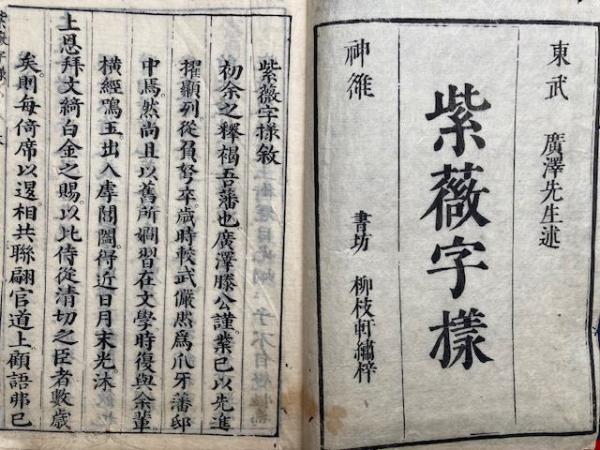 東武 廣澤先生述
紫薇字樣
神雒 書坊 柳枝軒繡梓
紫薇字樣敘
初余之釋褐吾藩也。廣澤滕公謹業已以先進
擢顯列從負弩卒。歲時較武。儼然爲爪牙藩邸
中焉。然尚且以舊所嫺習在文學。時復與余輩
橫經鳴玉。出入虖闥。得近日月末光。沐
上恩拜文綺白金之賜。以此侍從清切之臣者數歲
矣。則每倚席以還相共聯翩官道上。顧語弗已